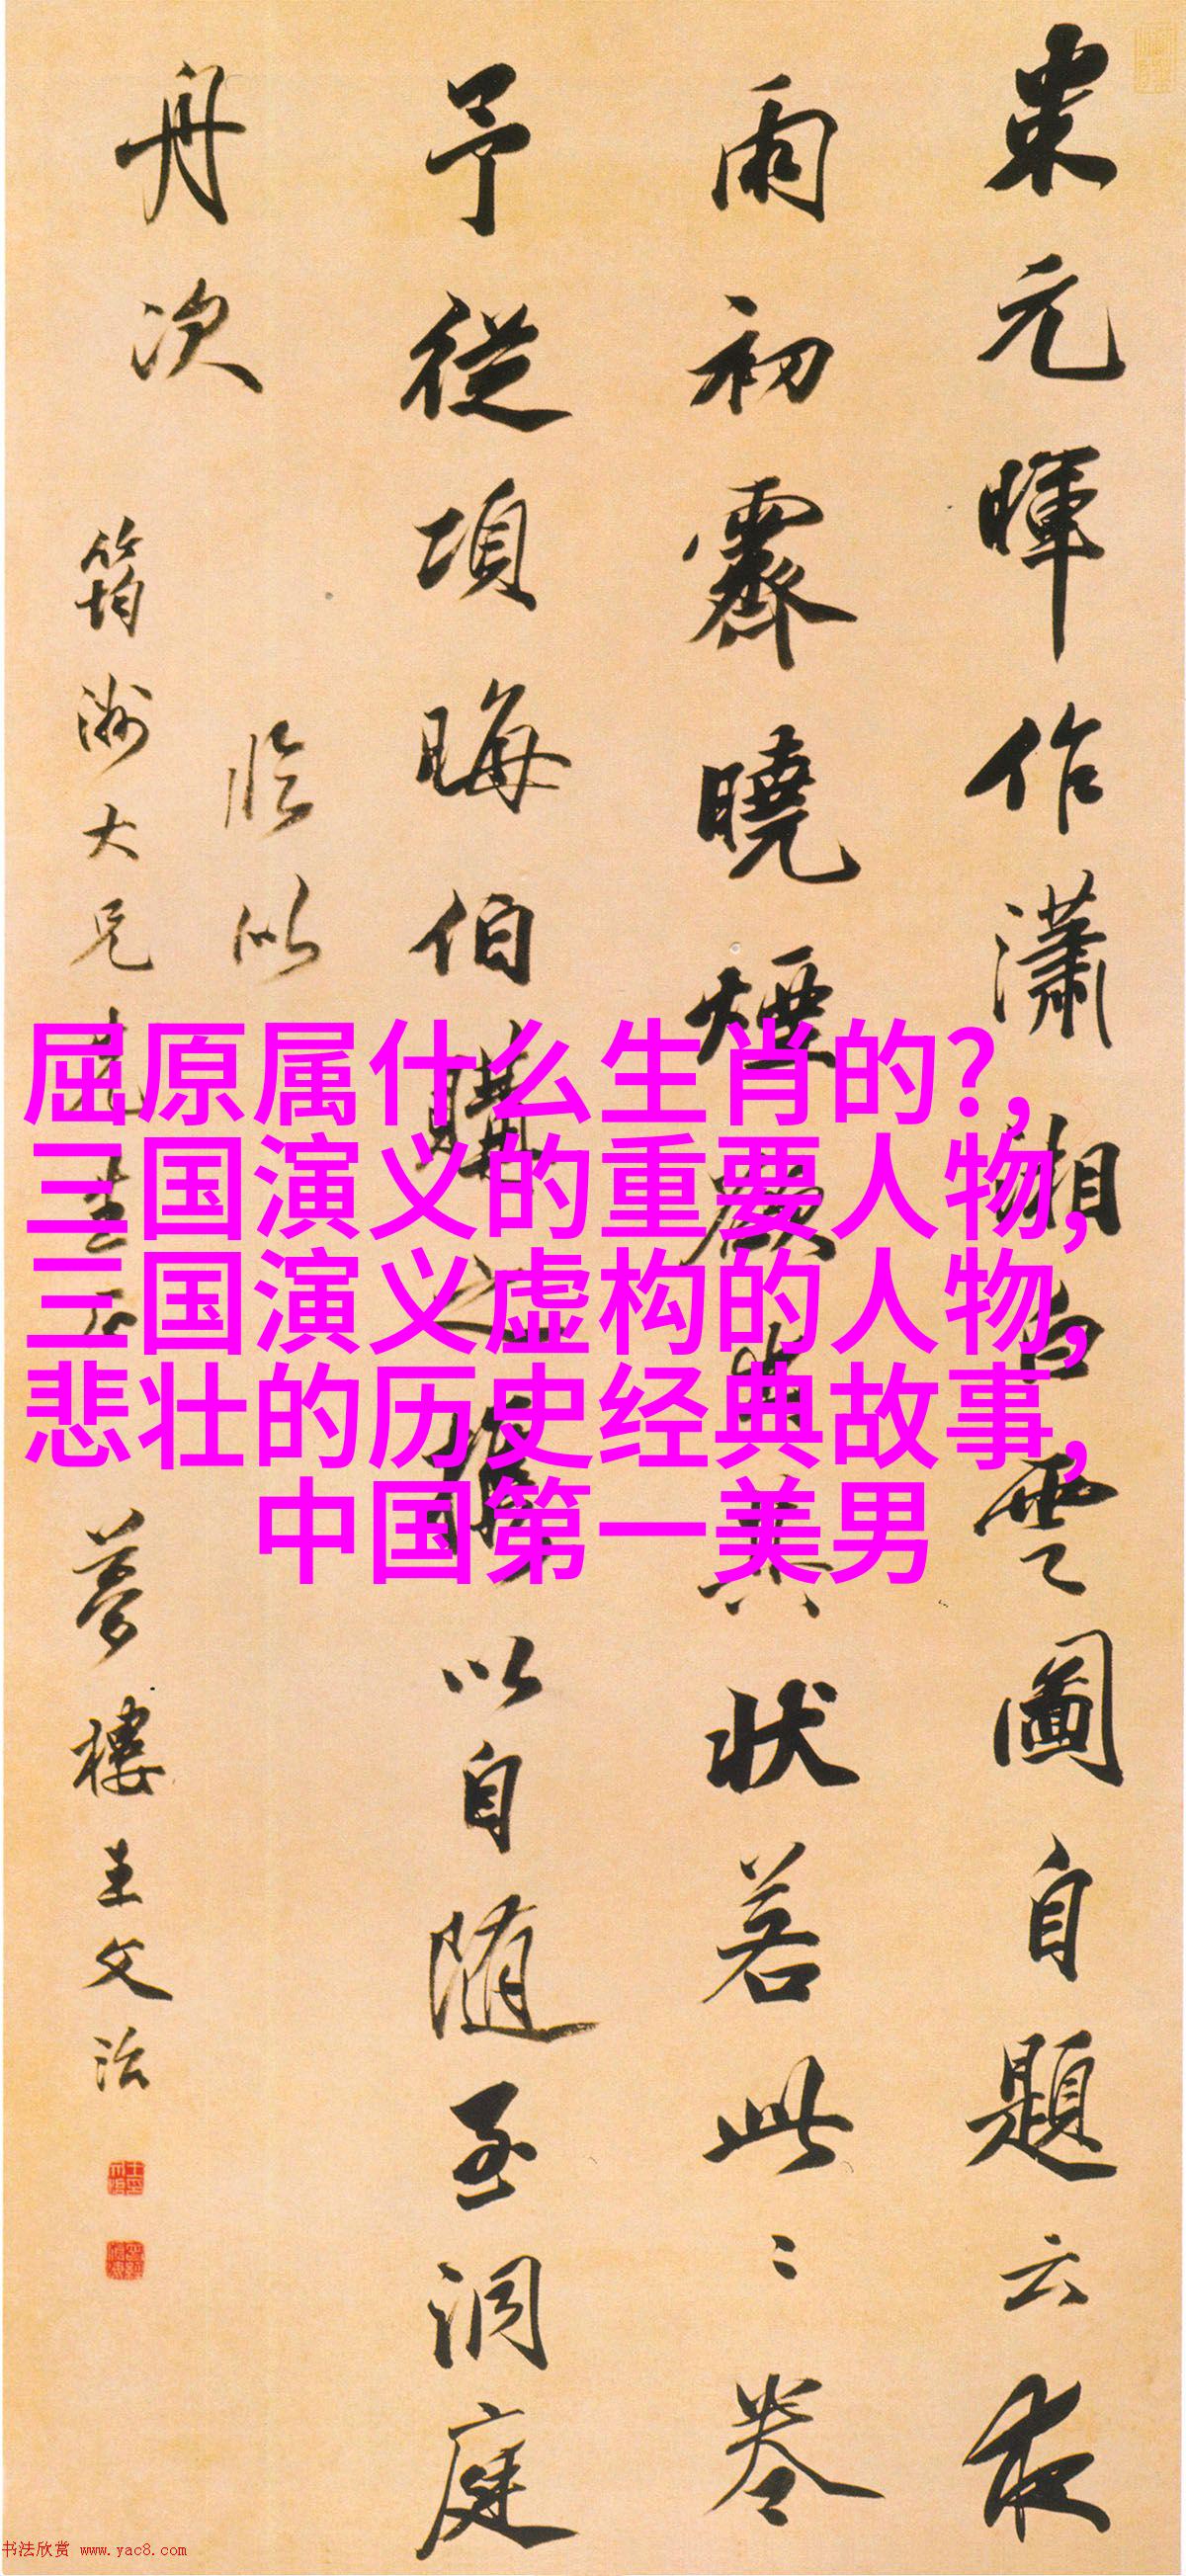 米元暉作瀟湘白雲圖自題云夜
雨初霽曉煙欲出其狀若此此卷
予從項晦伯購之攜以自隨至洞庭
舟次
臨似
筠洲大兄先生正
夢樓王文治
屈原属什么生肖的?,
三国演义的重要人物,
三国演义虚构的人物,
悲壮的历史经典故事,
中国第一美男
书法欣赏 www.yac8.com